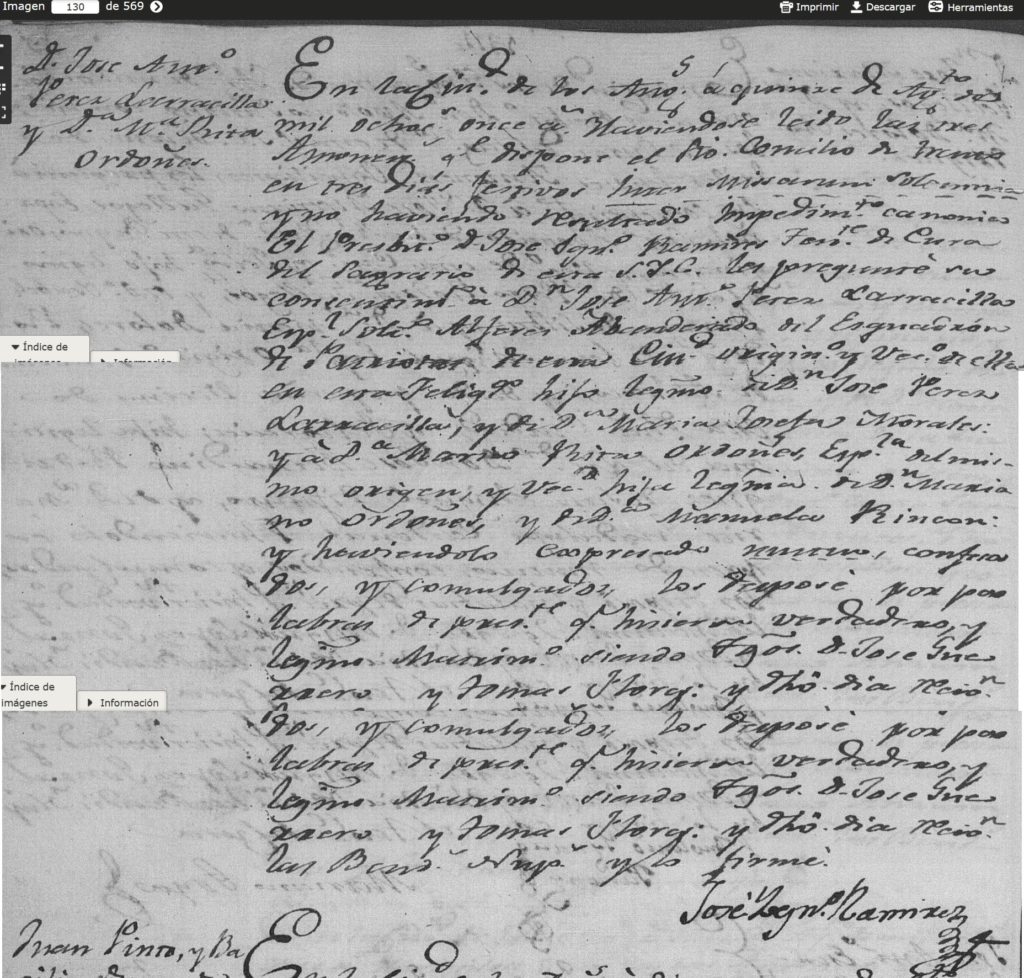 Imagen 130 de 569
Imprimir Descargar Herramientas
D. Jose Ant.º
Perez Larracilla
y D.ª M.ª Rita
Ordoñes.
En la Ciu.d de los Ang.s á quinze de Ag.to de
mil ochos.s once a.s Haviendose leido las tres
Amonen.s q.e dispone el Sto. Concilio de Trento
en tres dias festivos Inter Missarum Solemnia
y no haviendo resultado Impedim.to canonico
El Presbit.º D. Jose Ign.º Ramires Ten.te de Cura
del Sagrario de esta S.I.C. les pregunté su
consentim.to à D.n Jose Ant.º Perez Larracilla
Esp.l Solt.º Alferes Abanderado del Esquadron
de Patriotas de esta Ciu.d origin.º y Vec.º de ella
en esta Felig.s hijo legmo. de D.n Jose Perez
Larracilla, y de D.ª Maria Josefa Morales:
y à D.ª Maria Rita Ordoñes, Esp.la del mis-
mo origen, y Vec.d hija legma. de D.n Maria
no Ordoñes, y de D.ª Manuela Rincon:
y haviendolo expresado mutuo, confesa
dos, y comulgados, los despose por pa
labras de pres.te q.e hisieron verdadero, y
legmo Matrim.º siendo Tgos. D. Jose Gue
rrero y Tomas Flores: y dho. dia recio.n
Índice de
imágenes
Información
Índice de
imágenes
Información
dos, y comulgados, los despose por pa
labras de pres.te q.e hisieron verdadero, y
legmo Matrim.º siendo Tgos. D. Jose Gue
rrero y Tomas Flores: y dho. dia recio.n
las Bend.s Nup.s y lo firmé.
José Ign.º Ramirez
Juan Pinto, y Ba